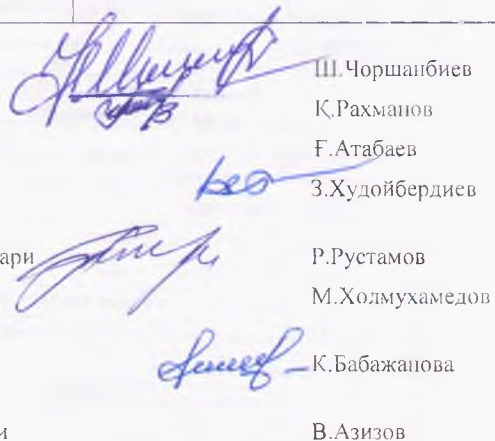 Ш.Чоршанбиев
Қ.Рахманов
Ғ.Атабаев
З.Худойбердиев
ари Р.Рустамов
М.Холмухамедов
К.Бабажанова
и В.Азизов